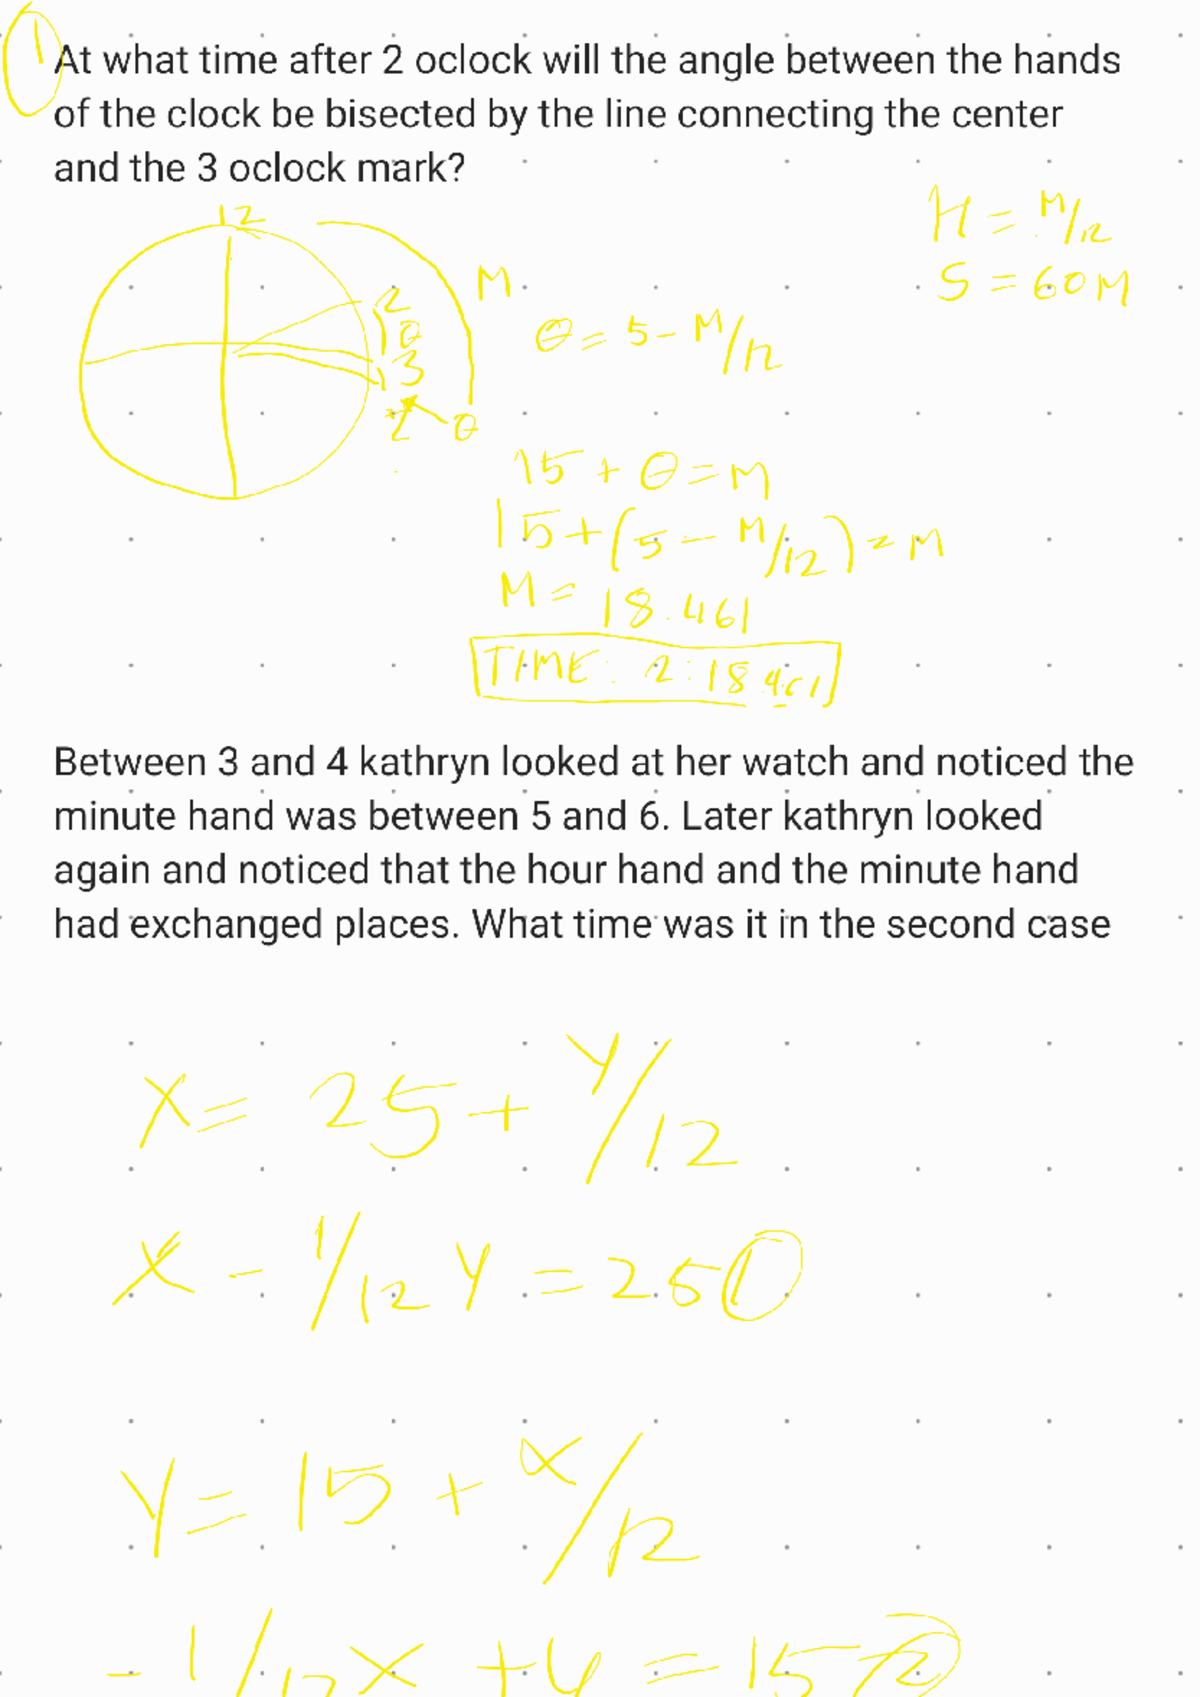 1
At what time after 2 oclock will the angle between the hands
of the clock be bisected by the line connecting the center
and the 3 oclock mark?
12
H = M/12
S = 60M
M
2
θ
3
θ
θ = 5 - M/12
15 + θ = M
15 + (5 - M/12) = M
M = 18.461
TIME: 2:18.461
Between 3 and 4 kathryn looked at her watch and noticed the
minute hand was between 5 and 6. Later kathryn looked
again and noticed that the hour hand and the minute hand
had exchanged places. What time was it in the second case
X = 25 + Y/12
X - 1/12 Y = 25 1
Y = 15 + X/12
- 1/12 X + Y = 15 2